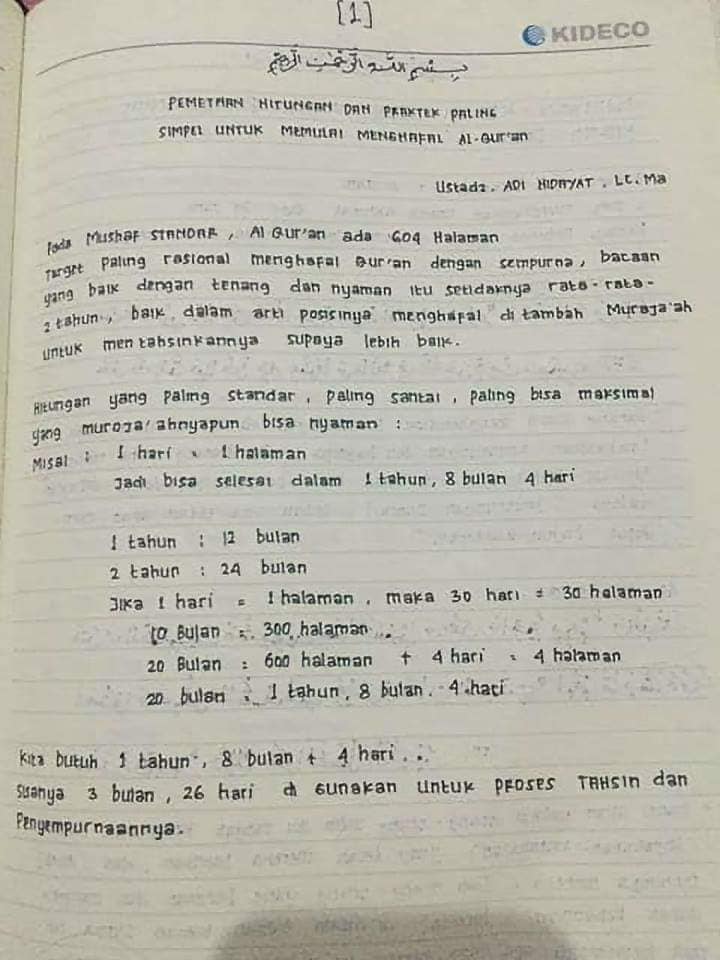 [1]
KIDECO
بسم الله الرحمن الرحيم
PEMETAAN HITUNGAN DAN PRAKTEK PALING
SIMPEL UNTUK MEMULAI MENGHAFAL Al-Qur'an
Ustadz. ADI HIDAYAT. Lc. Ma
Pada Mushaf STANDAR, Al Qur'an ada 604 Halaman
Target Paling rasional menghafal Qur'an dengan sempurna, bacaan
yang baik dengan tenang dan nyaman itu setidaknya rata-rata-
2 tahun, baik dalam arti posisinya menghafal di tambah Muraja'ah
untuk mentahsinkannya supaya lebih baik.
Hitungan yang Paling standar, paling santai, paling bisa maksimal
yang muroja'ahnyapun bisa nyaman :
Misal : 1 hari = 1 halaman
Jadi bisa selesai dalam 1 tahun, 8 bulan 4 hari
1 tahun : 12 bulan
2 tahun : 24 bulan
Jika 1 hari = 1 halaman, maka 30 hari = 30 halaman
10 Bulan = 300 halaman
20 Bulan = 600 halaman + 4 hari = 4 halaman
20 bulan = 1 tahun, 8 bulan. 4 hari
Kita butuh 1 tahun, 8 bulan + 4 hari..
Sisanya 3 bulan, 26 hari di Gunakan untuk PROSES TAHSIN dan
Penyempurnaannya.